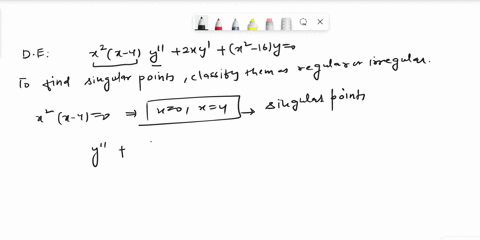 D.E: x²(x-4) y'' + 2xy' + (x²-16)y=0
To find singular points, classify them as regular or irregular.
x²(x-4)=0 ⇒ x=0, x=4 → singular points
y'' +